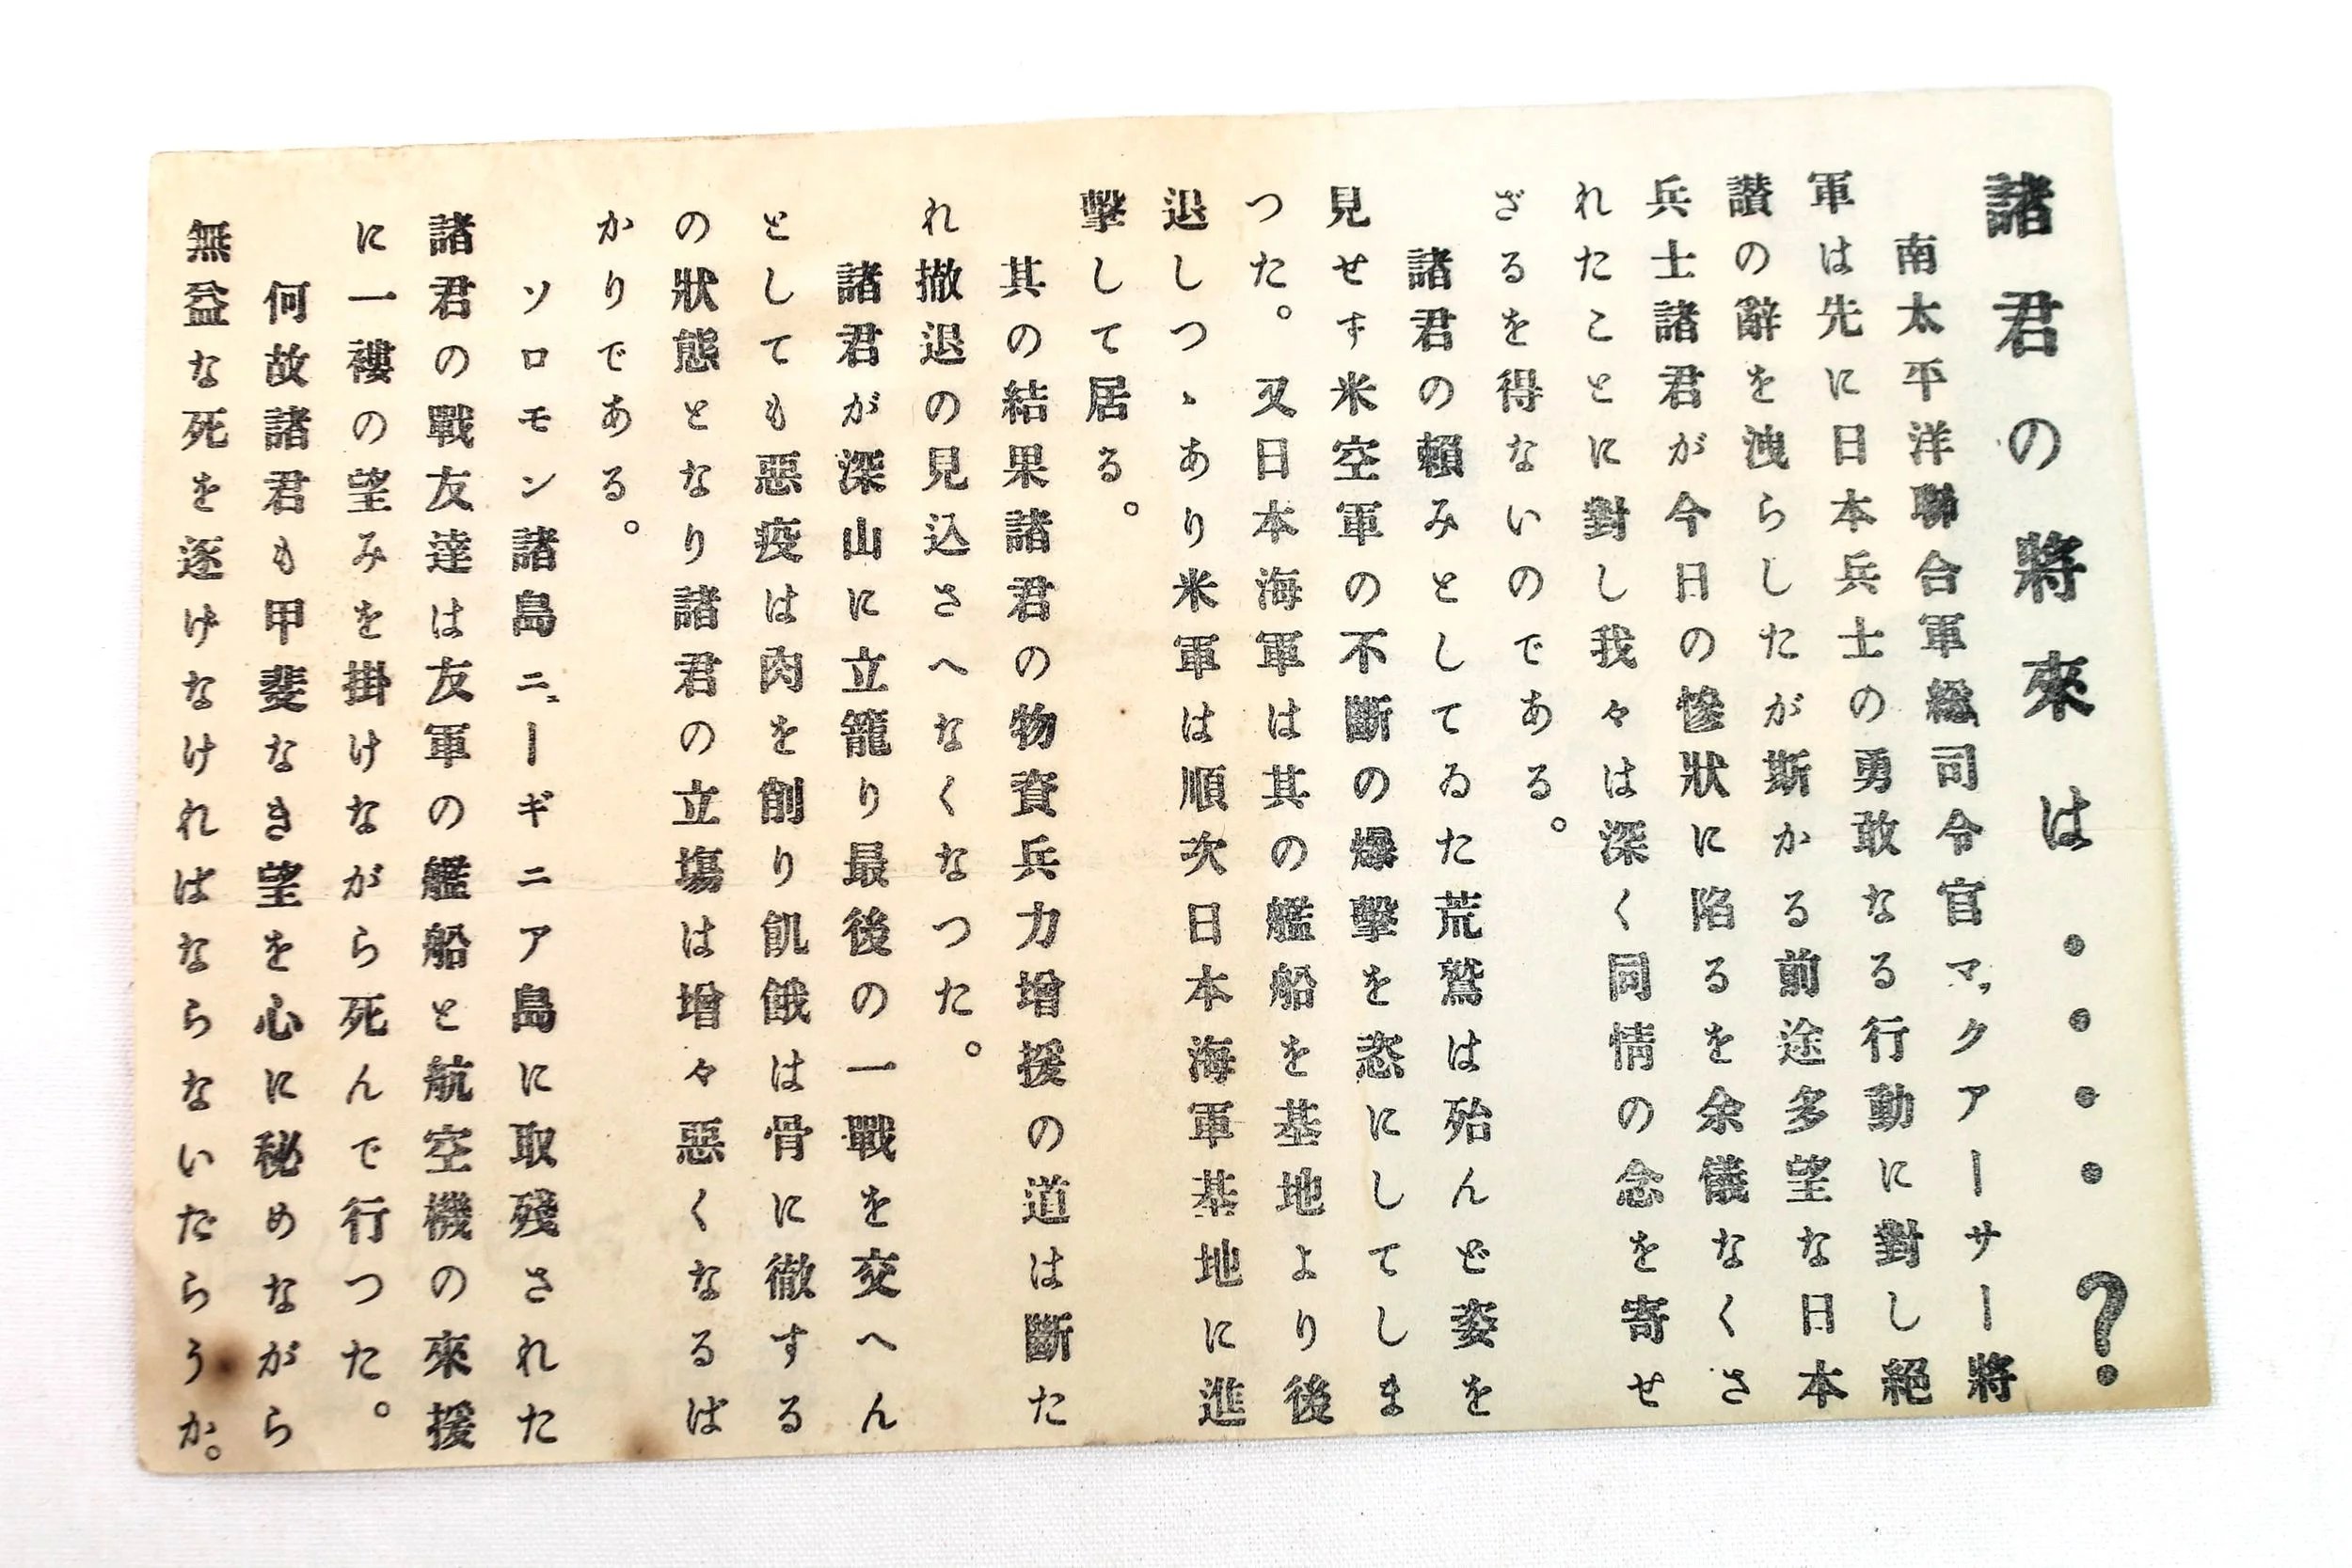 諸君の將來は・・・・?
南太平洋聯合軍總司令官マックアーサー將
軍は先に日本兵士の勇敢なる行動に對し絕
讃の辭を洩らしたが斯かる前途多望な日本
兵士諸君が今日の慘狀に陷るを余儀なくさ
れたことに對し我々は深く同情の念を寄せ
ざるを得ないのである。
諸君の賴みとしてゐた荒鷲は殆んど姿を
見せす米空軍の不斷の爆擊を恣にしてしま
つた。又日本海軍は其の艦船を基地より後
退しつゝあり米軍は順次日本海軍基地に進
擊して居る。
其の結果諸君の物資兵力增援の道は斷た
れ撤退の見込さへなくなつた。
諸君が深山に立籠り最後の一戰を交へん
としても惡疫は肉を創り飢餓は骨に徹する
の狀態となり諸君の立塲は增々惡くなるば
かりである。
ソロモン諸島ニューギニア島に取殘された
諸君の戰友達は友軍の艦船と航空機の來援
に一褸の望みを掛けながら死んで行つた。
何故諸君も甲斐なき望を心に秘めながら
無益な死を逐けなければならないだらうか。